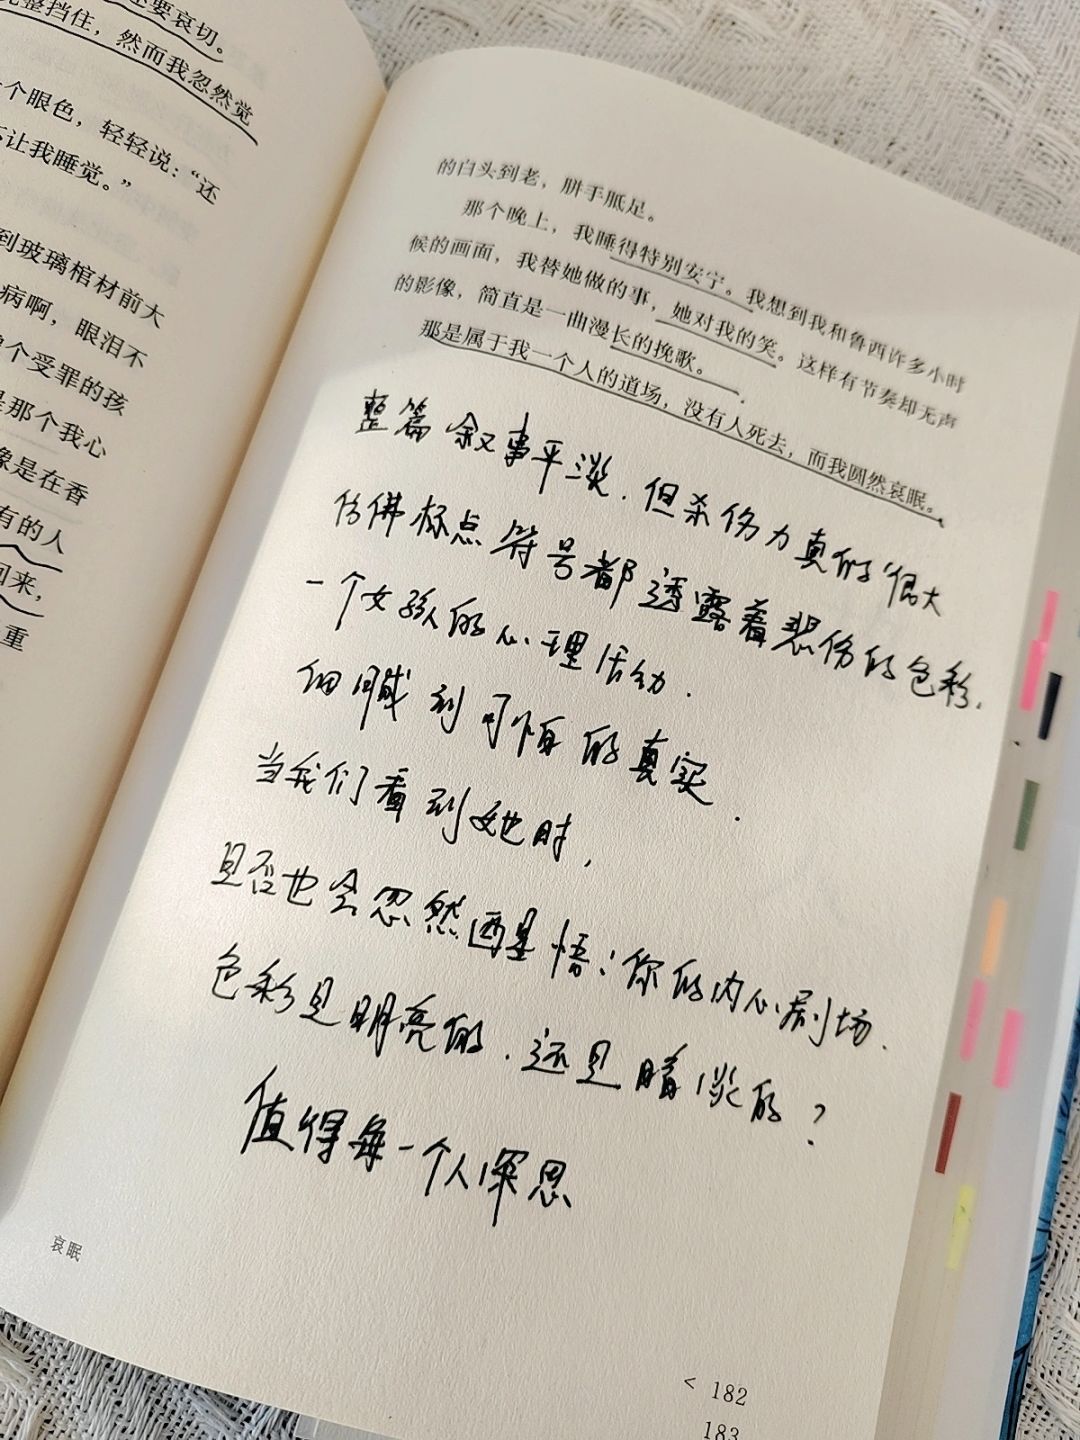 还要哀切。
完整挡住，然而我忽然觉
个眼色，轻轻说：“还
让我睡觉。”
到玻璃棺材前大
病啊，眼泪不
个受罪的孩
是那个我心
像是在香
有的人
回来，
重
哀眠
的白头到老，胼手胝足。
那个晚上，我睡得特别安宁。我想到我和鲁西许多小时
候的画面，我替她做的事，她对我的笑。这样有节奏却无声
的影像，简直是一曲漫长的挽歌。
那是属于我一个人的道场，没有人死去，而我圆然哀眠。
整篇叙事平淡．但杀伤力真的很大
仿佛标点符号都透露着悲伤的色彩．
一个女孩的心理活动．
细腻到可怕的真实．
当我们看到她时，
是否也会忽然醒悟：你的内心剧场．
色彩是明亮的．还是暗淡的？
值得每一个人深思
< 182
183